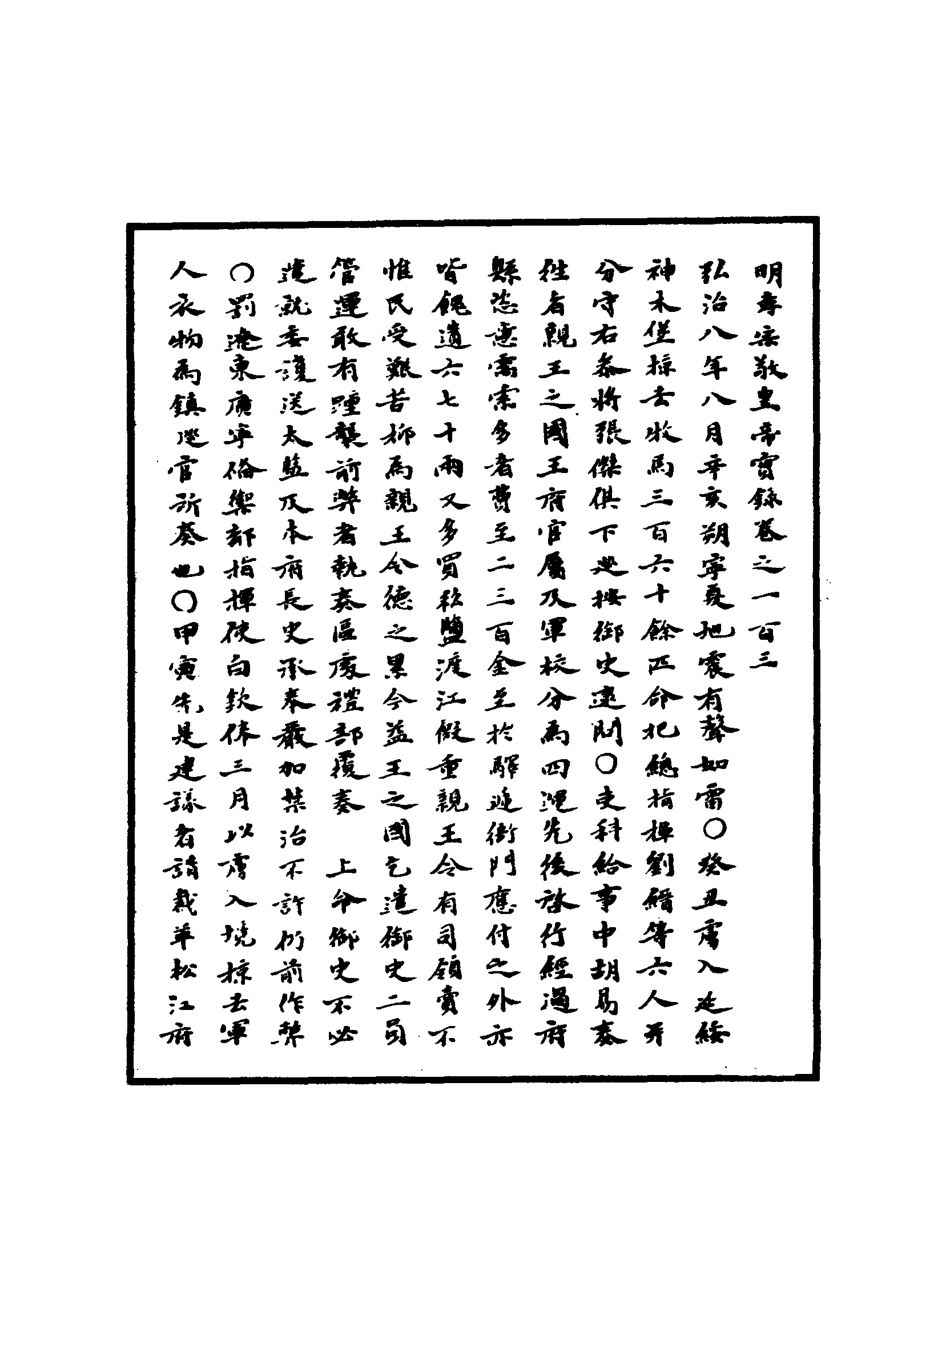 明孝宗敬皇帝實錄卷之一百三
弘治八年八月辛亥朔寧夏地震有聲如雷○癸丑虜入延綏
神木堡掠去牧馬三百六十餘匹命把總指揮劉縉等六人并
分守右參將張傑俱下巡按御史逮問○吏科給事中胡易奏
往者親王之國王府官屬及軍校分為四運先後啓行經過府
縣恣意需索多者費至二三百金至於驛遞衙門應付之外亦
皆餽遺六七十兩又多買私鹽渡江假重親王令有司領賣不
惟民受艱苦抑為親王令德之累今益王之國乞遣御史二員
管運敢有踵襲前弊者執奏區處禮部覆奏 上命御史不必
遣就委護送太監及本府長史承奉嚴加禁治不許仍前作弊
○罰遼東廣寧備禦都指揮使白欽俸三月以虜入境掠去軍
人衣物為鎮巡官所奏也○甲寅先是建議者請裁革松江府